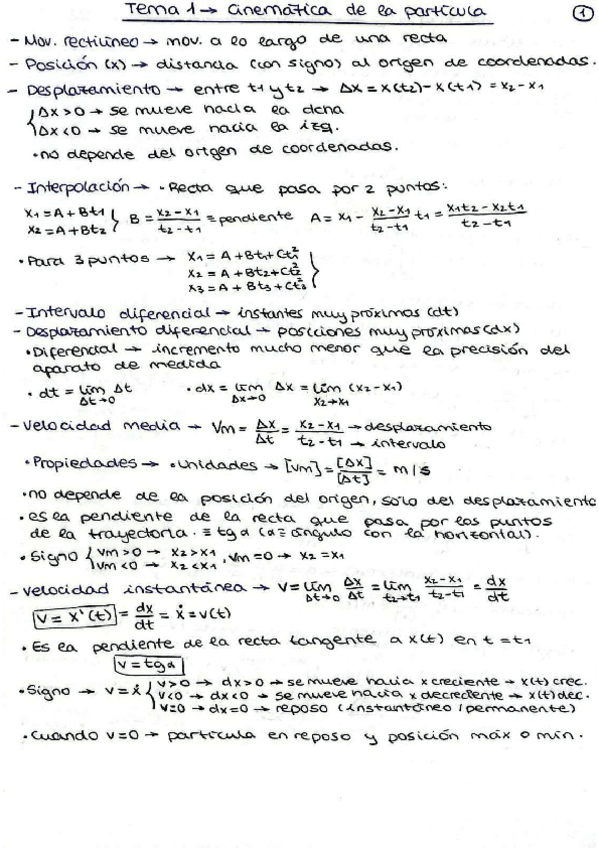 Tema 1 → Cinemática de la partícula
1
- Mov. rectilíneo → mov. a lo largo de una recta
- Posición (x) → distancia (con signo) al origen de coordenadas.
- Desplazamiento → entre t1 y t2 → Δx = x(t2) - x(t1) = x2 - x1
{ Δx > 0 → se mueve hacia la dcha
Δx < 0 → se mueve hacia la izq.
• no depende del origen de coordenadas.
- Interpolación → • Recta que pasa por 2 puntos:
x1 = A + Bt1
x2 = A + Bt2 } B = (x2 - x1)/(t2 - t1) ≡ pendiente A = x1 - (x2 - x1)/(t2 - t1) t1 = (x1t2 - x2t1)/(t2 - t1)
• Para 3 puntos → x1 = A + Bt1 + Ct1²
x2 = A + Bt2 + Ct2²
x3 = A + Bt3 + Ct3² }
- Intervalo diferencial → instantes muy próximos (dt)
- Desplazamiento diferencial → posiciones muy próximas (dx)
• Diferencial → incremento mucho menor que la precisión del
aparato de medida
• dt = lím Δt→0 Δt • dx = lím Δx→0 Δx = lím x2→x1 (x2 - x1)
- Velocidad media → Vm = Δx/Δt = (x2 - x1)/(t2 - t1) → desplazamiento → intervalo
• Propiedades → • Unidades → [Vm] = [Δx]/[Δt] = m/s
• no depende de la posición del origen, sólo del desplazamiento
• es la pendiente de la recta que pasa por los puntos
de la trayectoria. ≡ tg α (α ≡ ángulo con la horizontal).
• Signo { Vm > 0 → x2 > x1
Vm < 0 → x2 < x1 , Vm = 0 → x2 = x1
- Velocidad instantánea → V = lím Δt→0 Δx/Δt = lím t2→t1 (x2 - x1)/(t2 - t1) = dx/dt
V = x'(t) = dx/dt = ẋ = v(t)
• Es la pendiente de la recta tangente a x(t) en t = t1
V = tg α
• Signo → v = ẋ { v > 0 → dx > 0 → se mueve hacia x creciente → x(t) crec.
v < 0 → dx < 0 → se mueve hacia x decreciente → x(t) dec.
v = 0 → dx = 0 → reposo (instantáneo / permanente)
• Cuando v = 0 → partícula en reposo y posición máx o mín.